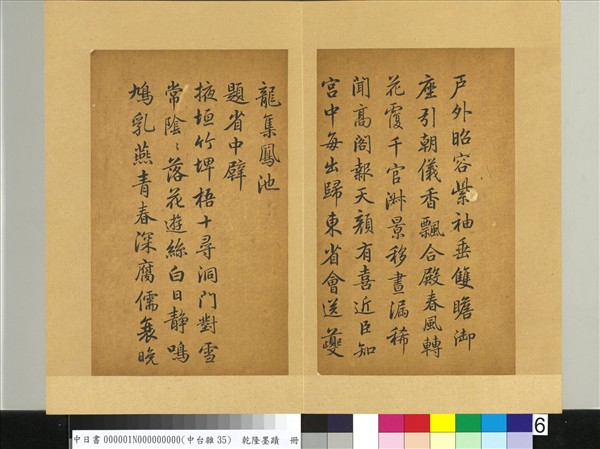 戶外昭容紫袖垂雙瞻御
座引朝儀香飄合殿春風轉
花覆千官淑景移晝漏稀
聞高閣報天顏有喜近臣知
宮中每出歸東省會送夔
龍集鳳池
題省中壁
掖垣竹埤梧十尋洞門對雪
常陰〻落花遊絲白日靜鳴
鳩乳燕青春深腐儒衰晚
中日書 000001N000000000(中台雜35) 乾隆墨蹟 冊
6